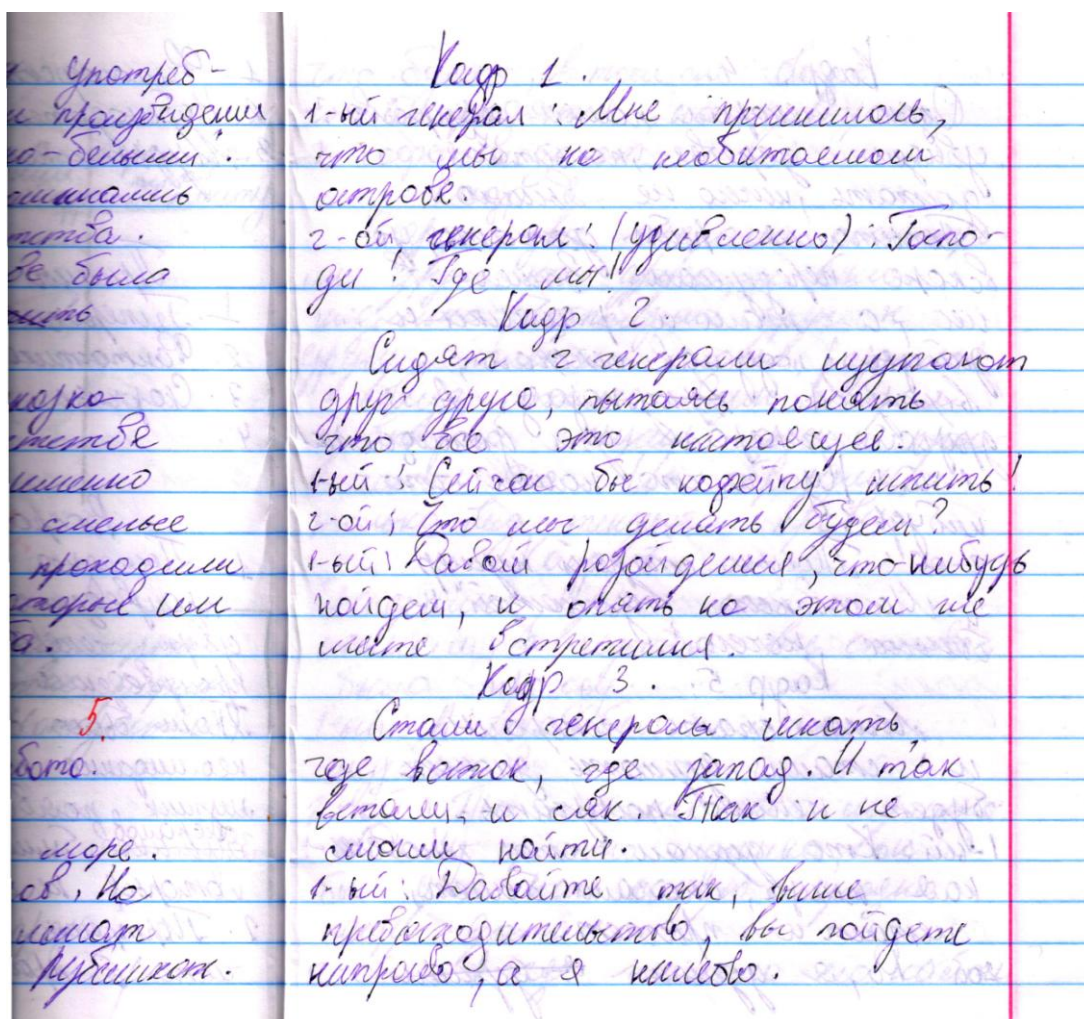 употреб-
произведении
о-белыми.
тства.
ве была
ить
именно
смелые
проходили
торые им
а.
5.
бота.
море.
ов. На
лежат
рубашках.
Кадр 1.
1-ый генерал: Мне приснилось,
что мы на необитаемом
острове.
2-ой генерал: (удивленно): Госпо-
ди! Где мы!
Кадр 2.
Сидят 2 генерала щупают
друг друга, пытаясь понять
что все это настоящее.
1-ый: Сейчас бы кофейку испить!
2-ой: Что мы делать будем?
1-ый: Давай разойдемся, что-нибудь
найдем, и опять на этом же
месте встретимся.
Кадр 3.
Стали генералы искать,
где восток, где запад. И так
встали, и сяк. Так и не
смогли найти.
1-ый: Давайте так, ваше
превосходительство, вы пойдете
направо, а я налево.